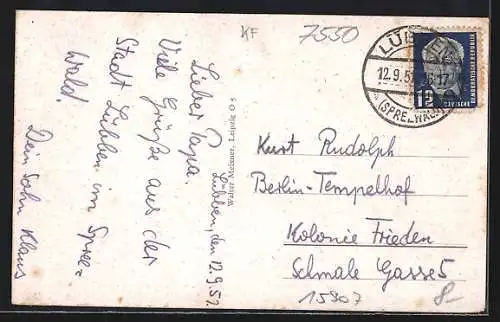 KF
7550
Lübben, den 12.9.52
Lieber Papa.
Viele Grüße aus der
Stadt Lübben im Spree=
wald!
Dein Sohn Klaus
Walter Meixner, Leipzig O 5
LÜB
12.9.5
(SPREEWALD)
12
DEUTSCHE
DEMOKRATISCHE REPUBLIK
Kurt Rudolph
Berlin-Tempelhof
Kolonie Frieden
Schmale Gasse 5
15907
8-